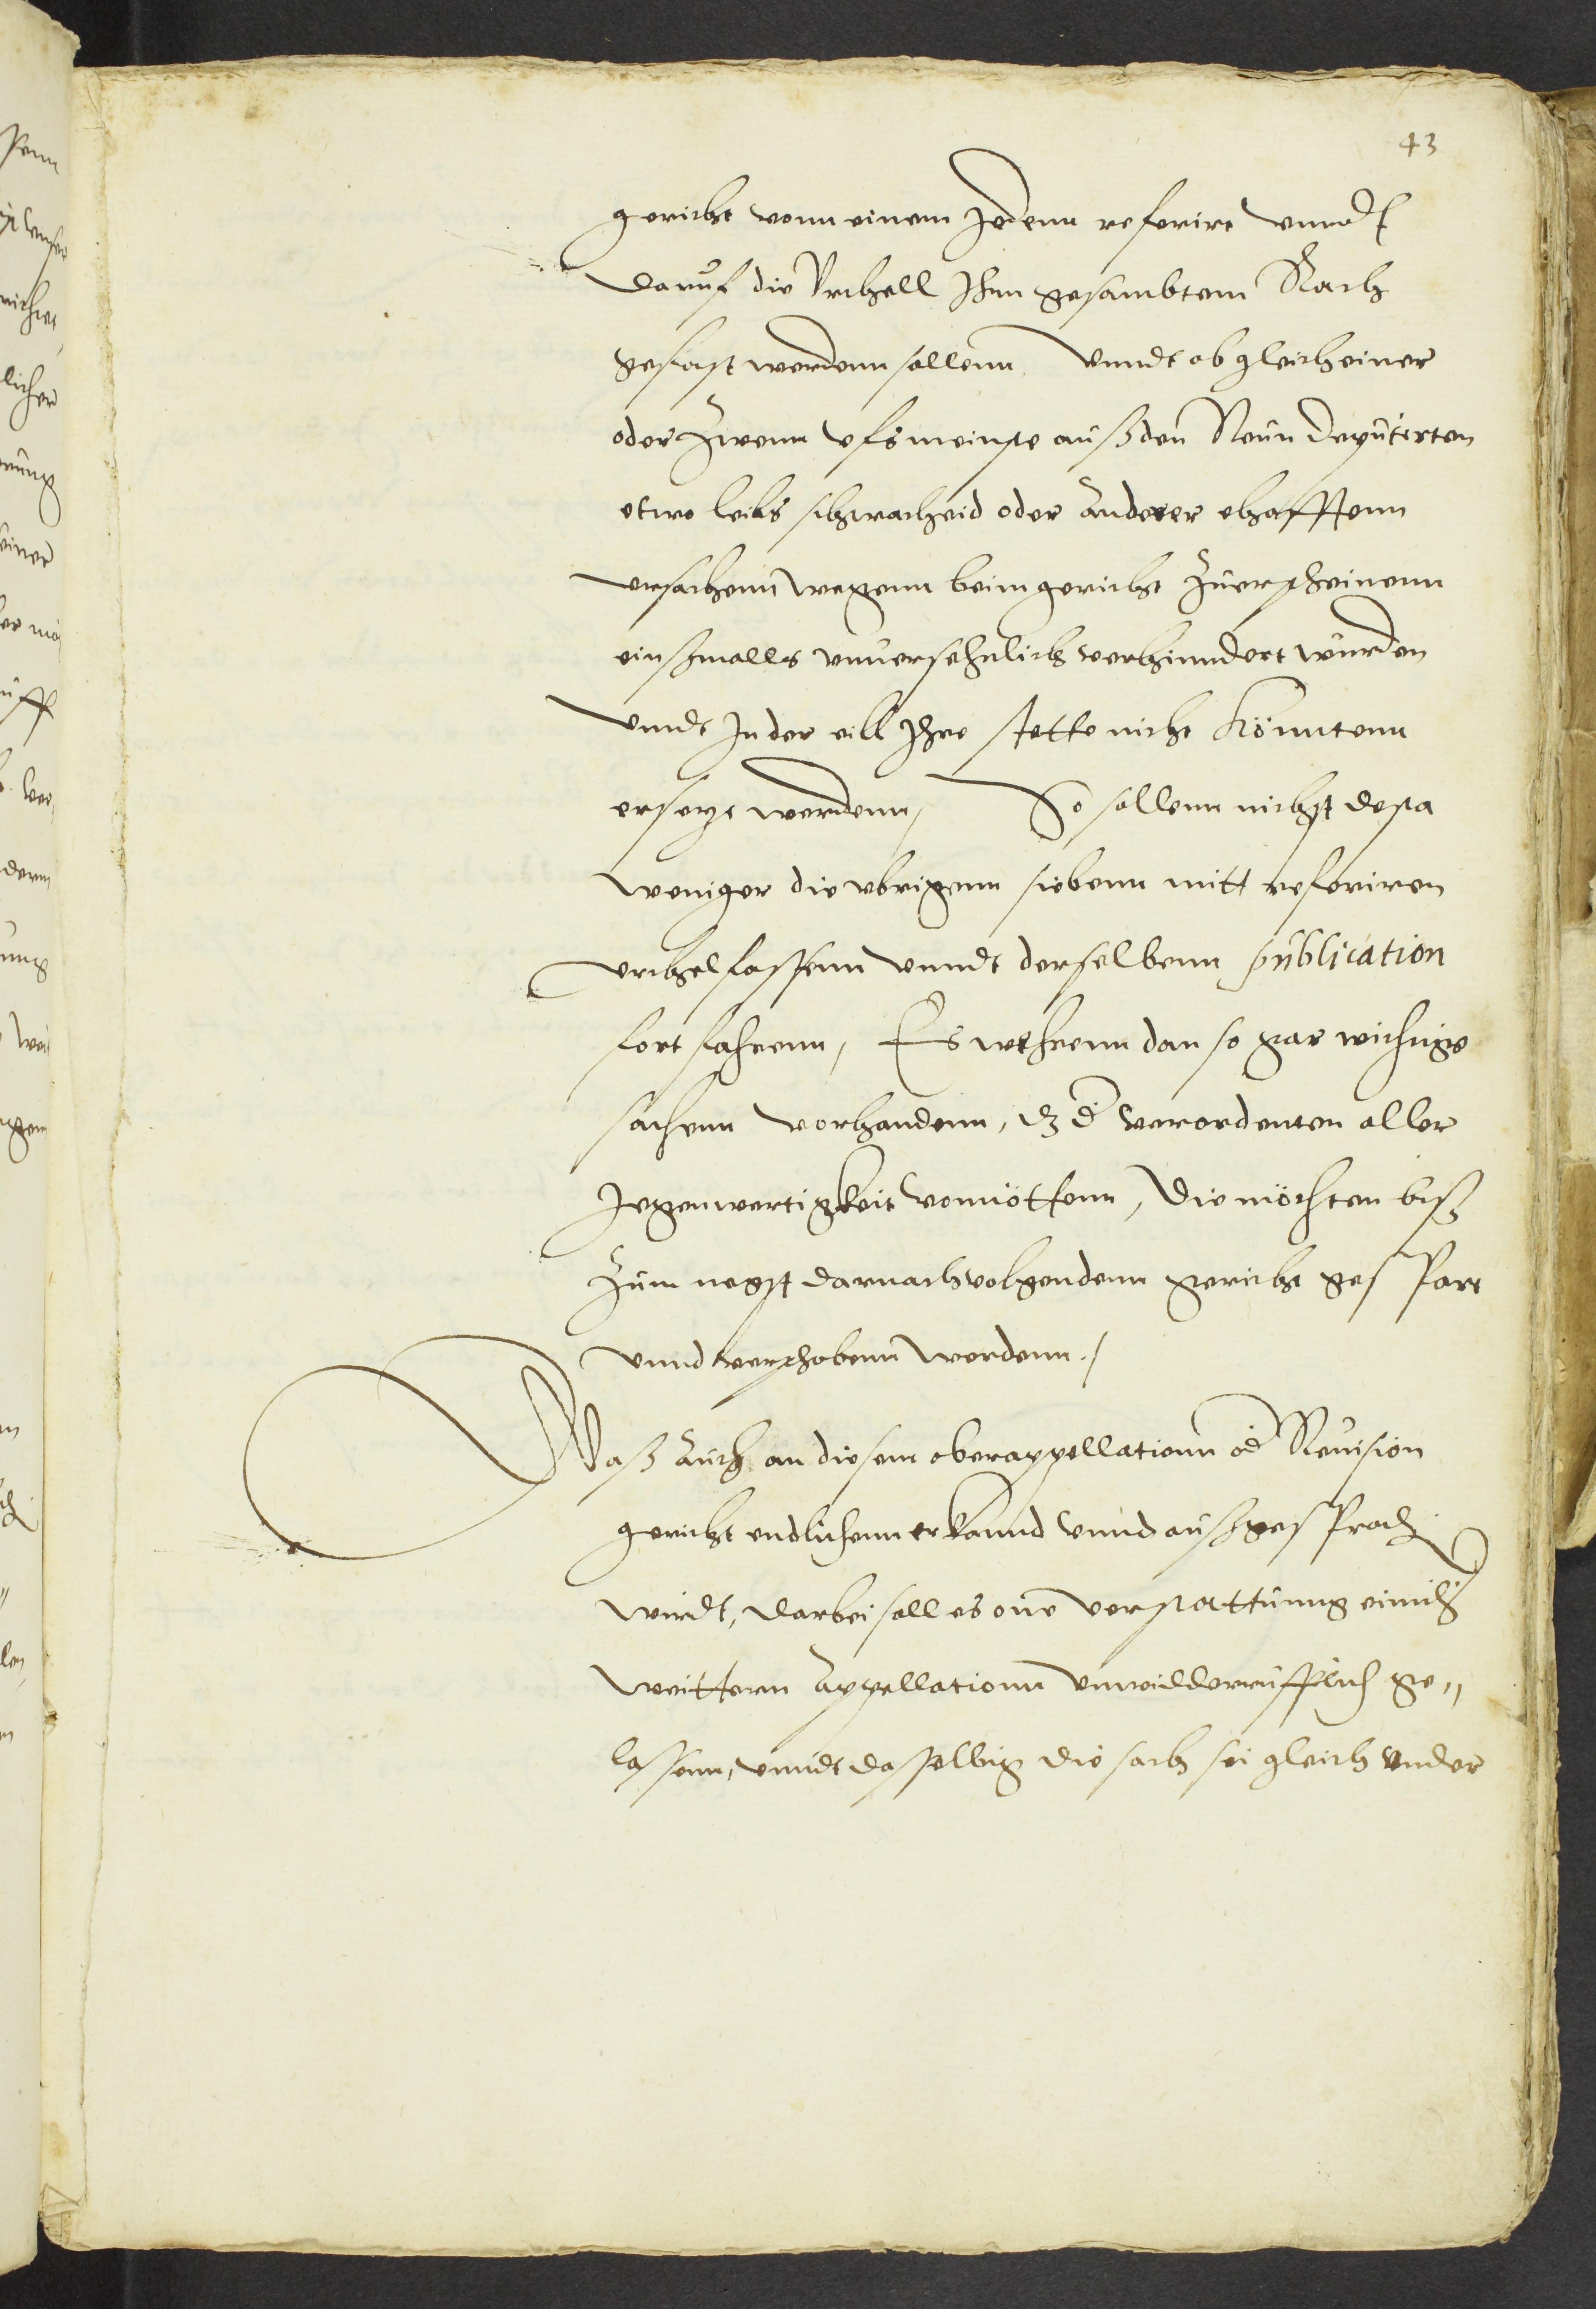 43
gericht vonn einem Jedenn referirt vnndt
daruf die Vrthell Ihm gesambtem Rath
gefast werdenn sollenn, Vnndt ob gleich einer
oder Zwenn vfs meinste auß den Neun Deputirten
etwo leibs schwacheid oder Anderer ehafftenn
vrsachenn wegenn beim gericht Zuerscheinenn
einßmalls vnuersehnlich verhinndert wurden
Vnndt In der eill Ihre stette nicht könntenn
ersetzt werdenn, So sollenn nichst desta
weniger die vbrigenn siebenn mitt referiren
vrthel fassenn vnndt derselbenn publication
fort fahrenn, Es wehrenn dan so gar wichtige
sachenn vorhandenn, dz d verordenten aller
Jegenwertigkeit vonnöttenn, die möchten biß
Zum negst darnach volgendenn gericht gespart
vnnd verschobenn werdenn./
Waß Auch an diesem oberappellationn od Reuision
gericht endlichenn erkannd vnnd außgesproch
wirdt, darbei soll es one verstattunng einich
weittern Appellationn vnwidderrufflich ge„
lassenn, vnndt dasselbig die sach sei gleich vnder